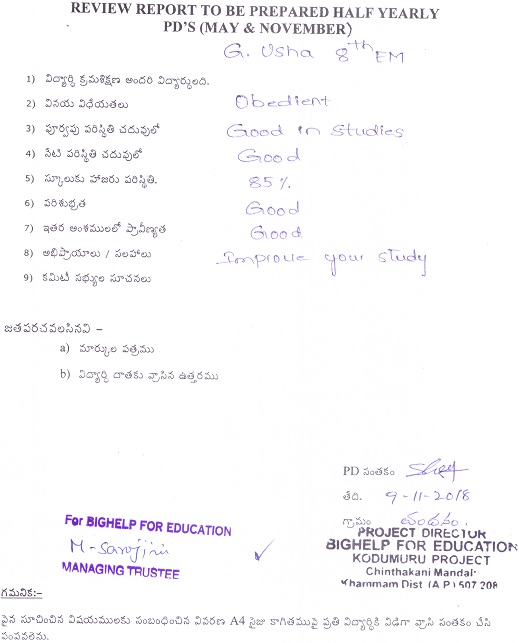 REVIEW REPORT TO BE PREPARED HALF YEARLY
PD'S (MAY & NOVEMBER)
G. Usha 8th EM
1) విద్యార్థి క్రమశిక్షణ అందరి విద్యార్థులది.
2) వినయ విధేయతలు Obedient
3) పూర్వపు పరిస్థితి చదువులో Good in Studies
4) నేటి పరిస్థితి చదువులో Good
5) స్కూలుకు హాజరు పరిస్థితి. 85%
6) పరిశుభ్రత Good
7) ఇతర అంశములలో ప్రావీణ్యత Good
8) అభిప్రాయాలు / సలహాలు Improve your study
9) కమిటీ సభ్యుల సూచనలు
జతపరచవలసినవి –
a) మార్కుల పత్రము
b) విద్యార్థి దాతకు వ్రాసిన ఉత్తరము
PD సంతకం
తేది. 9-11-2018
గ్రామం
For BIGHELP FOR EDUCATION
M-Sarojini
MANAGING TRUSTEE
PROJECT DIRECTOR
BIGHELP FOR EDUCATION
KODUMURU PROJECT
Chinthakani Mandal
Khammam Dist (A.P) 507 208
గమనిక:–
పైన సూచించిన విషయములకు సంబంధించిన వివరణ A4 సైజు కాగితముపై ప్రతి విద్యార్థికి విడిగా వ్రాసి సంతకం చేసి
పంపవలెను.